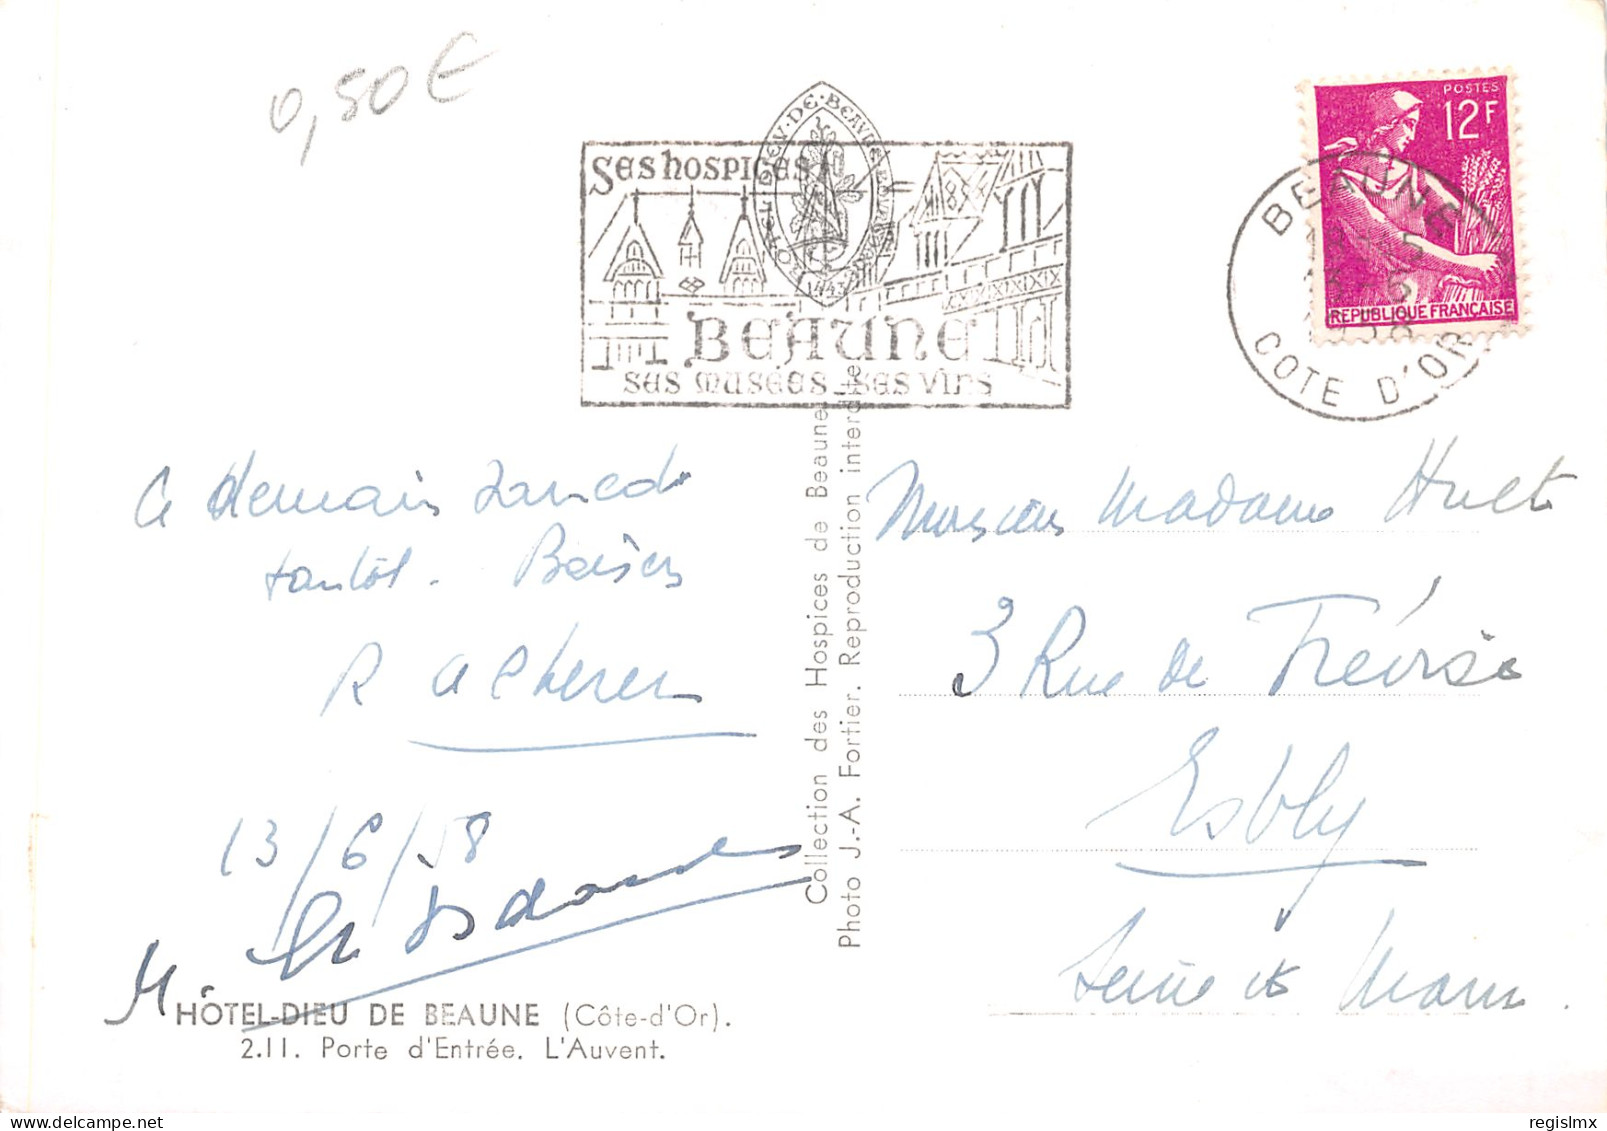 0,50€
HOTEL-DIEU·DE·BEAUNE
SES HOSPICES
1443
BEAUNE
SES MUSÉES - SES VINS
POSTES
12F
REPUBLIQUE FRANÇAISE
BEAUNE
COTE D'OR
a demain
tantôt. Baisers
R
13/6/58
M.
Collection des Hospices de Beaune
Photo J.-A. Fortier. Reproduction interdite
Monsieur Madame Huet
3 Rue de Trévise
Esbly
Seine et Marne.
HÔTEL-DIEU DE BEAUNE (Côte-d'Or).
2.11. Porte d'Entrée. L'Auvent.
delcampe.net
regislmx